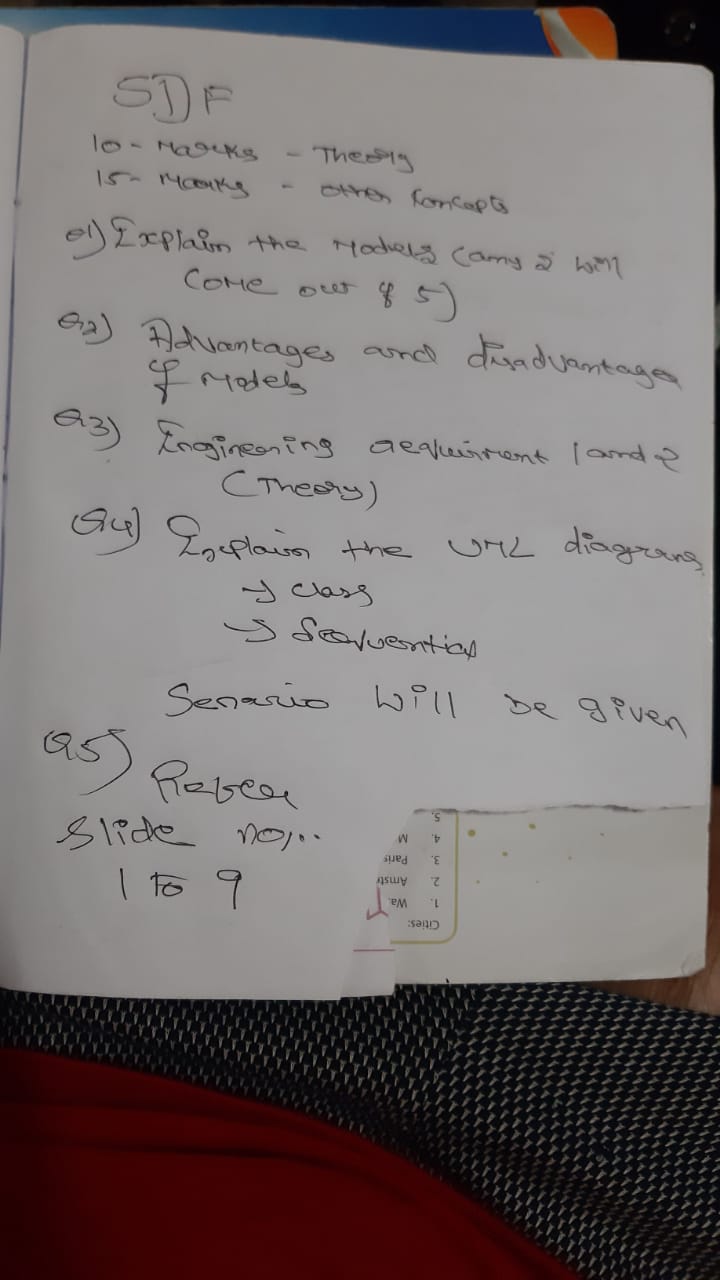 SDF
10 - Marks - Theory
15 - Marks - other Concepts
Q1) Explain the Models (any 2 will
Come out of 5)
Q2) Advantages and disadvantages
of Models
Q3) Engineering requirment 1 and 2
(Theory)
Q4) Explain the UML diagrams
→ Class
→ Sequential
Senario will be given
Q5)
Slide no,..
1 To 9
Cities:
1. Wa
2. Amst
3. Paris
4. M
5.